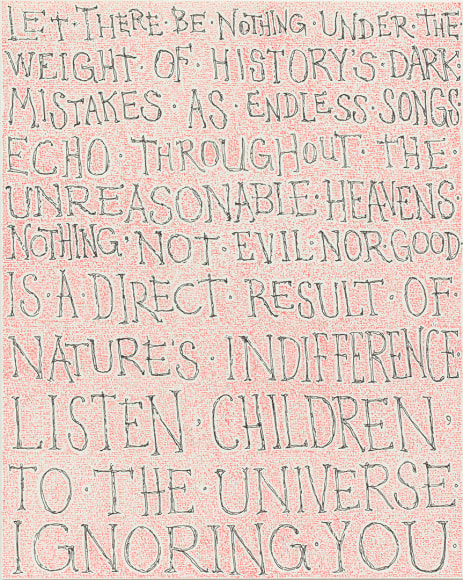 LET·THERE·BE·NOTHING·UNDER·THE·
WEIGHT·OF·HISTORY'S·DARK·
MISTAKES·AS·ENDLESS·SONGS
ECHO·THROUGHOUT·THE·
UNREASONABLE·HEAVENS·
NOTHING,NOT·EVIL·NOR·GOOD
IS·A·DIRECT·RESULT·OF·
NATURE'S·INDIFFERENCE·
LISTEN,CHILDREN,
TO·THE·UNIVERSE·
IGNORING·YOU·